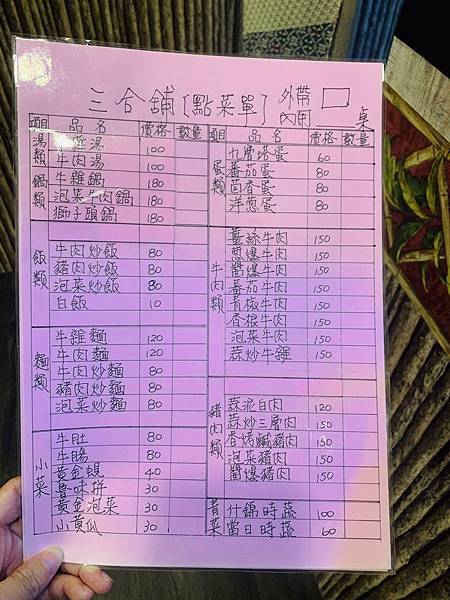 三合鋪〔點菜單〕 外帶 內用 □ 桌
項目 品名 價格 數量
湯類
湯 100
牛肉湯 100
鍋類
牛雜鍋 180
泡菜牛肉鍋 180
獅子頭鍋 180
飯類
牛肉炒飯 80
豬肉炒飯 80
泡菜炒飯 80
白飯 10
麵類
牛雜麵 120
牛肉麵 120
牛肉炒麵 80
豬肉炒麵 80
泡菜炒麵 80
小菜
牛肚 80
牛腸 80
黃金蜆 40
魯味拼 30
黃金泡菜 30
小黃瓜 30
項目 品名 價格 數量
蛋類
九層塔蛋 60
番茄蛋 80
茴香蛋 80
洋蔥蛋 80
牛肉類
薑絲牛肉 150
蔥爆牛肉 150
醬爆牛肉 150
番茄牛肉 150
青椒牛肉 150
香根牛肉 150
泡菜牛肉 150
蒜炒牛雜 150
豬肉類
蒜泥白肉 120
蒜炒三層肉 150
香烤鹹豬肉 150
泡菜豬肉 150
醬爆豬肉 150
青菜
什錦時蔬 100
當日時蔬 60